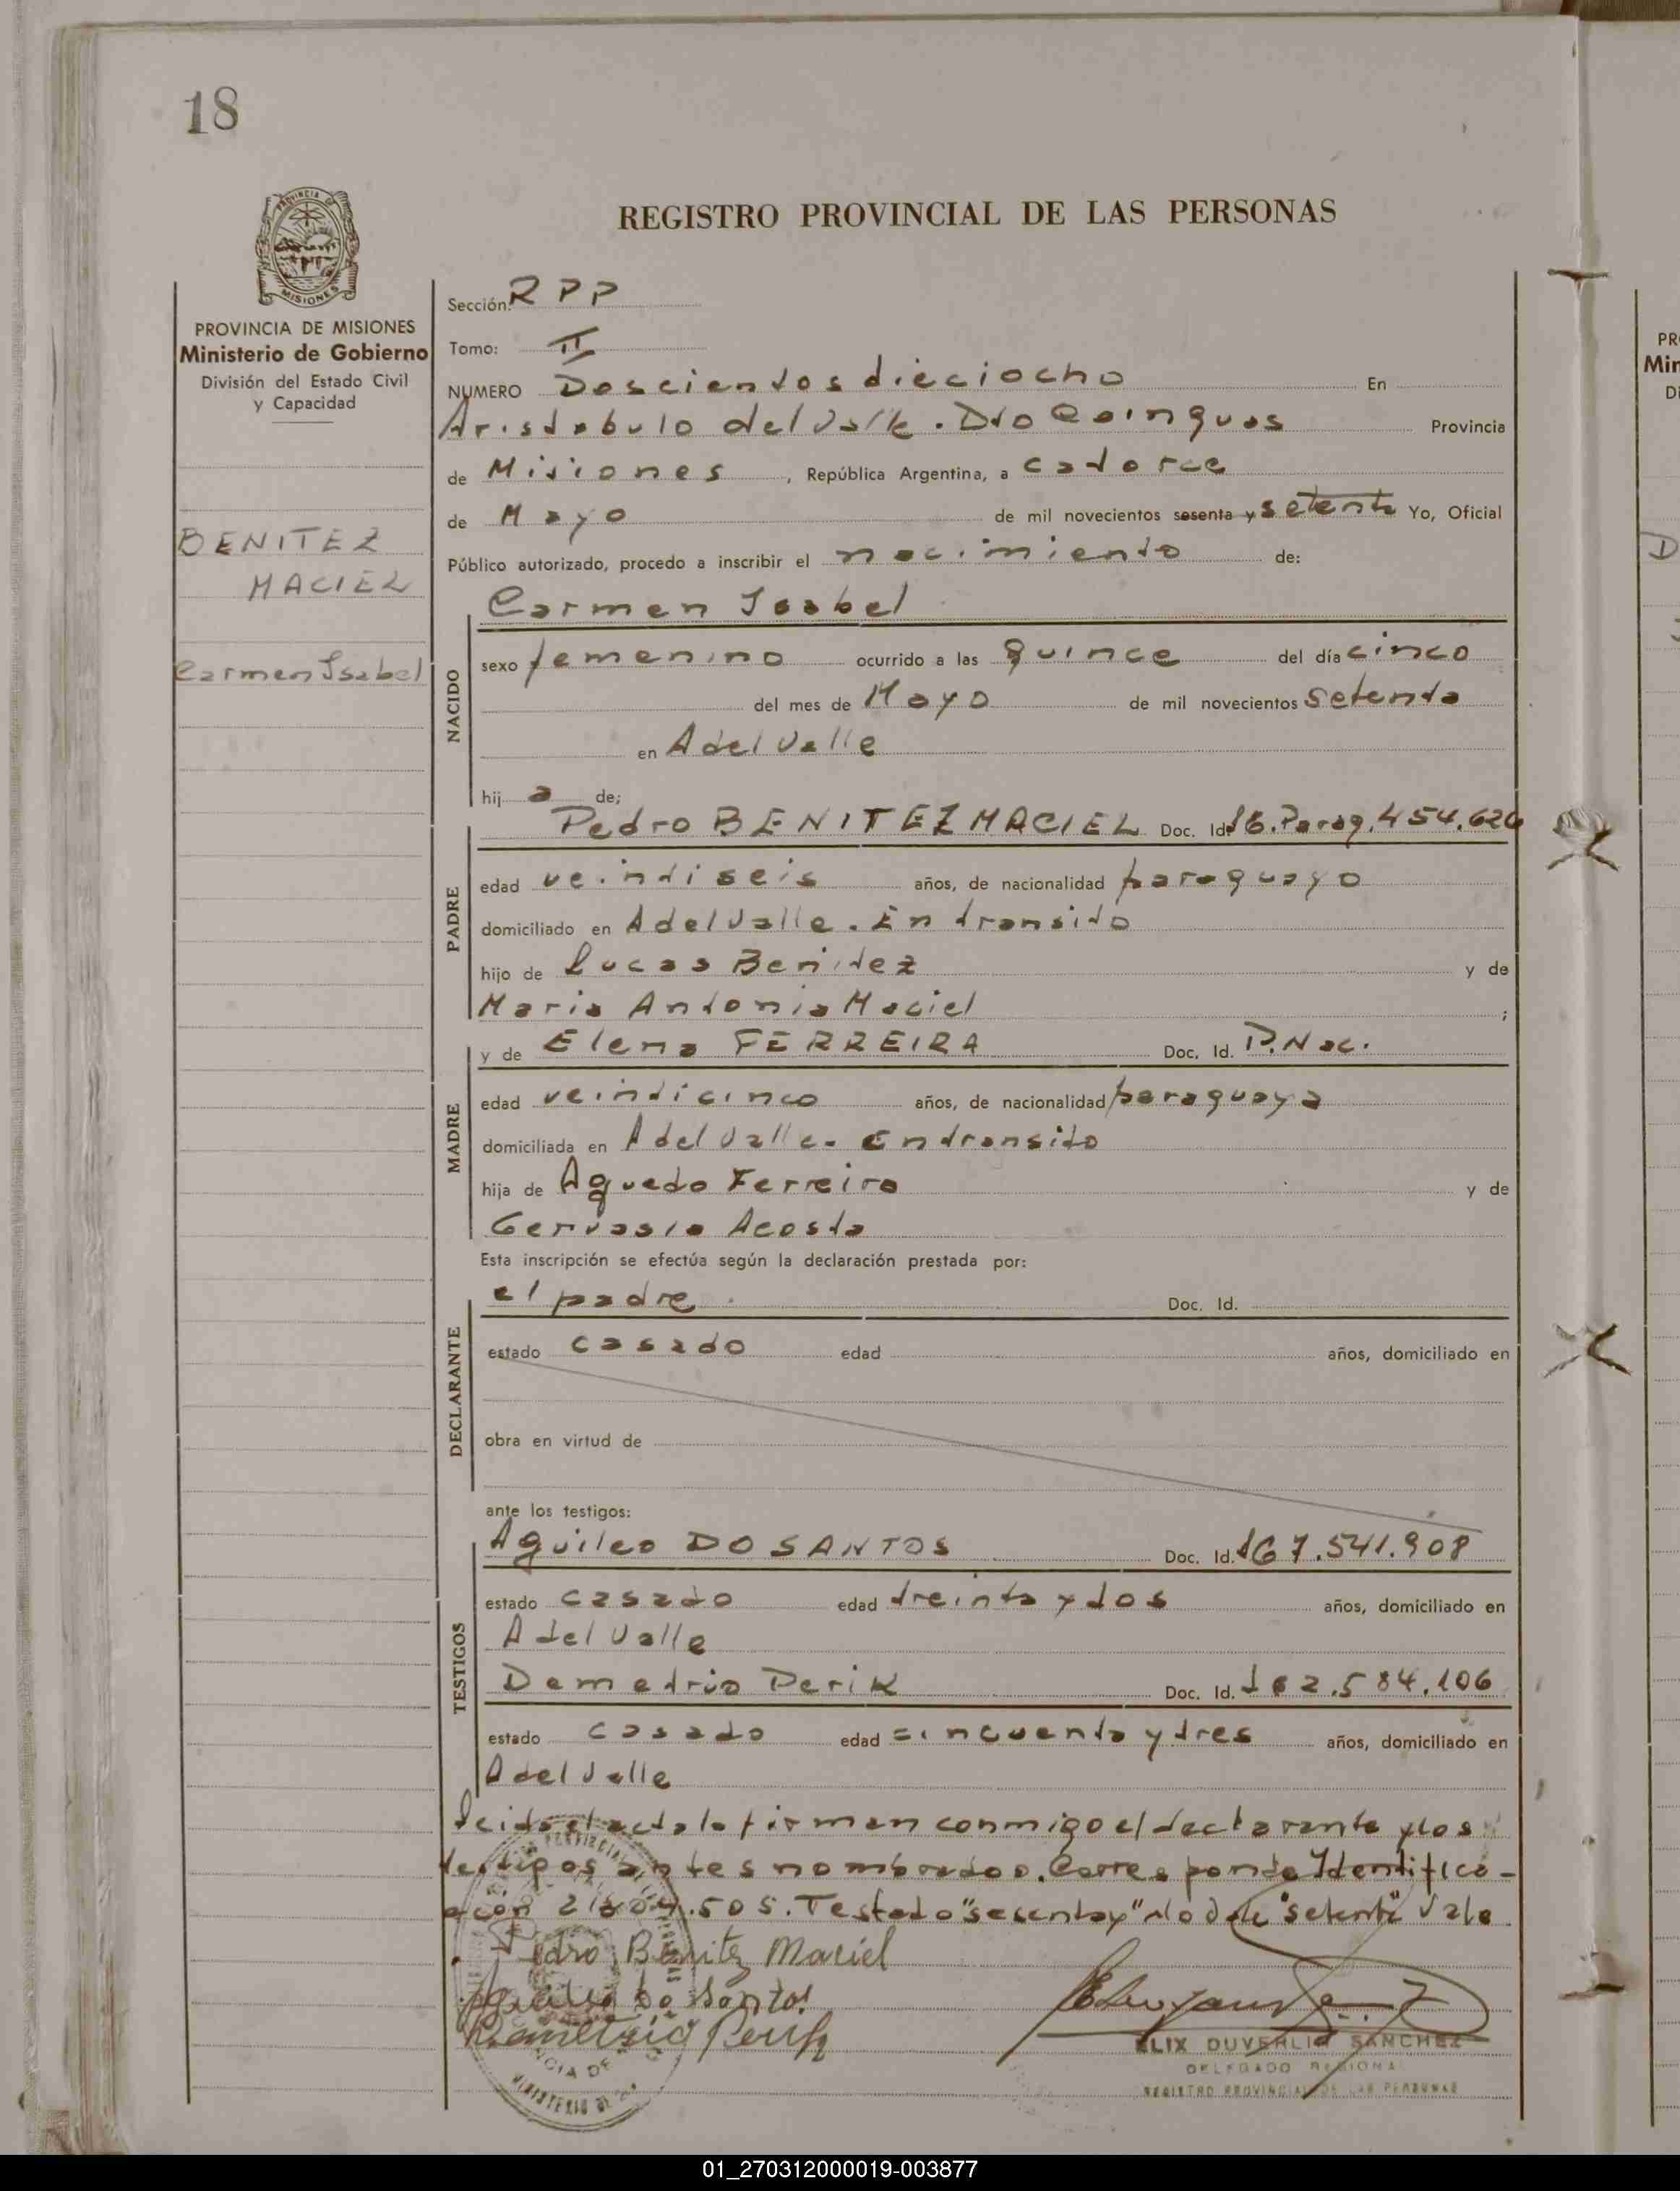 18
PROVINCIA DE MISIONES
REGISTRO PROVINCIAL DE LAS PERSONAS
PROVINCIA DE MISIONES
Ministerio de Gobierno
División del Estado Civil
y Capacidad
BENITEZ
MACIEL
Carmen Isabel
Sección: RPP
Tomo: II
NUMERO Doscientos dieciocho En
Aristobulo del Valle. Dto Cainguas Provincia
de Misiones, República Argentina, a catorce
de Mayo de mil novecientos sesenta y setenta Yo, Oficial
Público autorizado, procedo a inscribir el nacimiento de:
Carmen Isabel
NACIDO
sexo femenino ocurrido a las quince del día cinco
del mes de Mayo de mil novecientos setenta
en A del Valle
hij a de;
PADRE
Pedro BENITEZ MACIEL Doc. Id. Parag. 454.626
edad veintiseis años, de nacionalidad paraguayo
domiciliado en A del Valle. En transito
hijo de Lucas Benitez y de
Maria Antonia Maciel ;
MADRE
y de Elena FERREIRA Doc. Id. P. Nac.
edad veinticinco años, de nacionalidad paraguaya
domiciliada en A del Valle. En transito
hija de Aguedo Ferreira y de
Gervasia Acosta
Esta inscripción se efectúa según la declaración prestada por:
DECLARANTE
el padre. Doc. Id.
estado casado edad años, domiciliado en
obra en virtud de
ante los testigos:
TESTIGOS
Aguileo DO SANTOS Doc. Id. 7.541.908
estado casado edad treinta y dos años, domiciliado en
A del Valle
Demetrio Perik Doc. Id. 2.584.106
estado casado edad cincuenta y tres años, domiciliado en
A del Valle
Leida el acta la firman conmigo el declarante y los
testigos antes nombrados. Corresponde Identifica-
ción .505. Testado "sesenta y" No Vale "setenta" Vale
Pedro Benitez Maciel
Aguileo Do Santos
Demetrio Perik
ELIX DUVERLID SANCHEZ
DELEGADO REGIONAL
REGISTRO PROVINCIAL DE LAS PERSONAS
PR
Min
Di
D
01_270312000019-003877